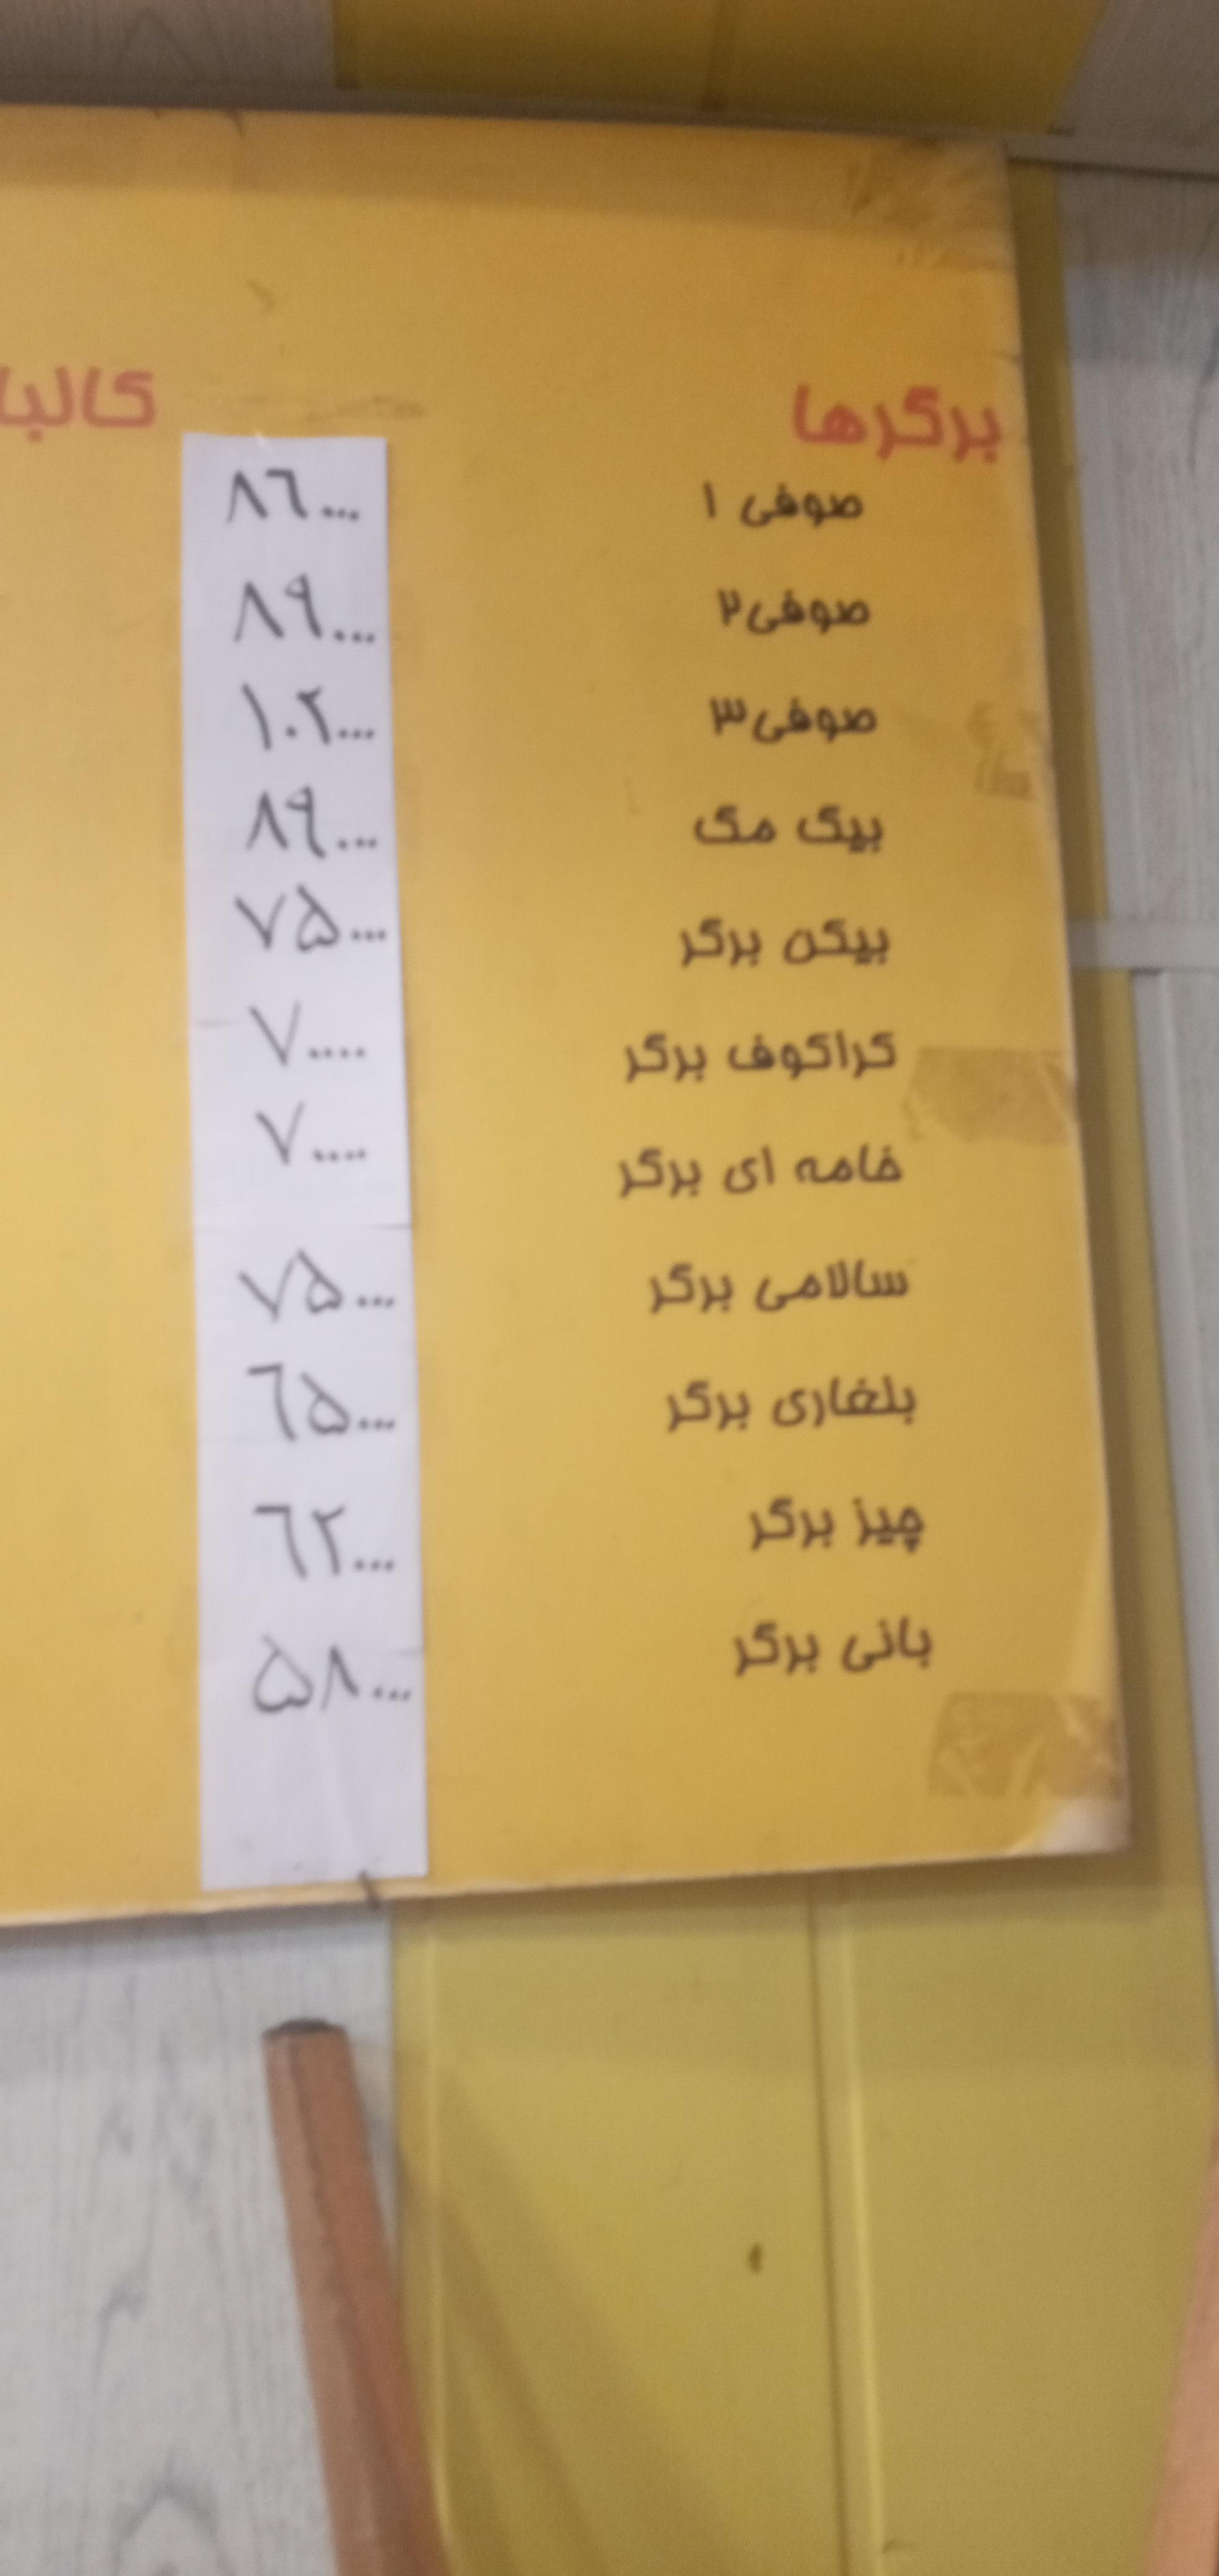 برگرها
صوفی ۱ ۸۶۰۰۰
صوفی۲ ۸۹۰۰۰
صوفی۳ ۱۰۲۰۰۰
بیک مک ۸۹۰۰۰
بیکن برگر ۷۵۰۰۰
کراکوف برگر ۷۰۰۰۰
خامه ای برگر ۷۰۰۰۰
سالامی برگر ۷۵۰۰۰
بلغاری برگر ۶۵۰۰۰
چیز برگر ۶۲۰۰۰
بانی برگر ۵۸۰۰۰
کالبا